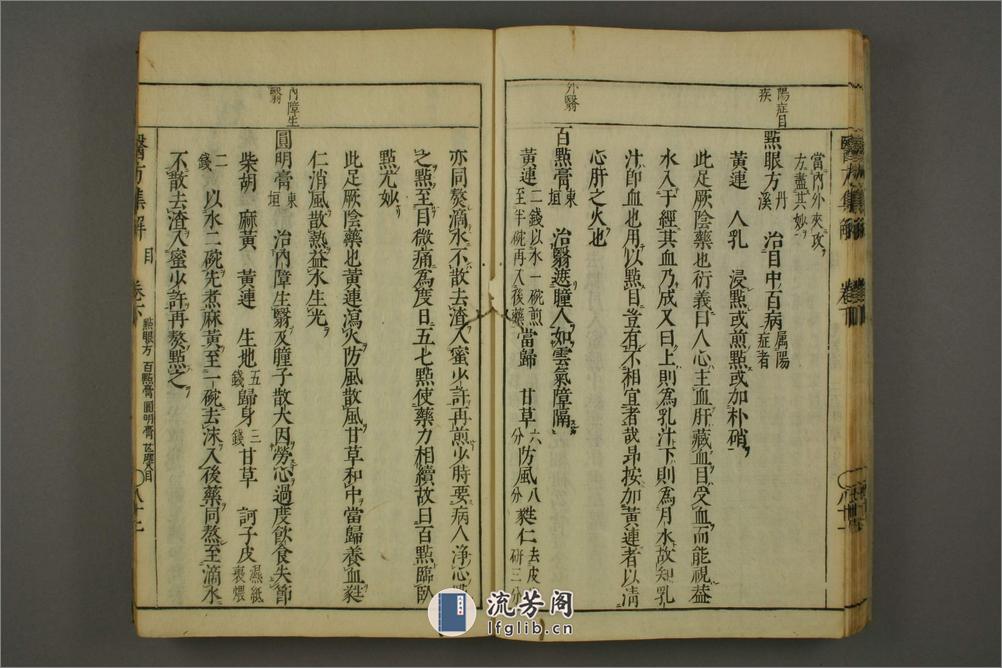 當內外夾攻
左盡其妙
陽症目疾
點眼方 丹溪 治目中百病 属陽症者
黃連 人乳 浸點或煎點或加朴硝
此足厥陰藥也衍義曰人心主血肝藏血目受血而能視葢
水入于經其血乃成又曰上則為乳汁下則為月水故知乳
汁即血也用以點目豈有不相宜者哉昂按加黃連者以清
心肝之火也
外翳
百點膏 東垣 治翳遮瞳人如雲氣障隔
黃連 二錢以水一碗煎至半碗再入後藥 當歸 甘草 六分 防風 八分 蕤仁 去皮研三分
亦同熬滴水不散去渣入蜜少許再煎少時要病人淨心
之點至目微痛為度日五七點使藥力相續故日百點臨臥
點尤妙
此足厥陰藥也黃連瀉火防風散風甘草和中當歸養血蕤
仁消風散熱益水生光
內障生翳
圓明膏 東垣 治內障生翳及瞳子散大因勞心過度飲食失節
柴胡 麻黃 黃連 生地 五錢 歸身 三錢 甘草 訶子皮 濕紙裹煨
二錢 以水二碗先煮麻黃至一碗去沫入後藥同熬至滴水
不散去渣入蜜少許再熬點之
醫方集解 目 卷六 點眼方 百點膏 圓明膏 八十二
流芳阁
lfglib.cn